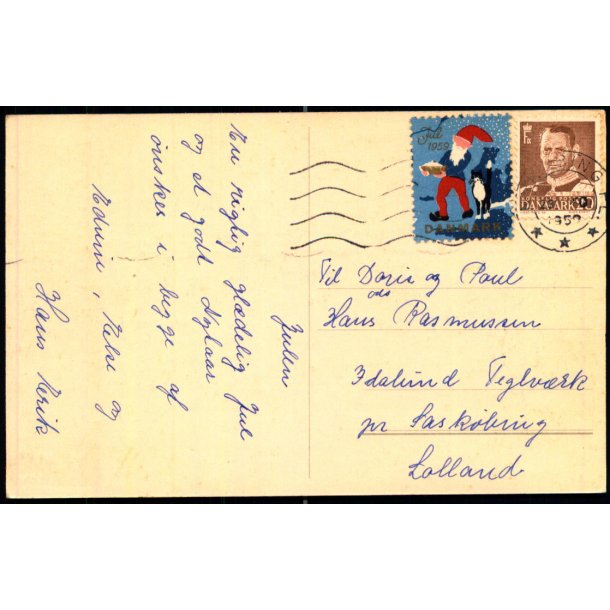 Julen
En rigtig glædelig Jul
og et godt Nytaar
ønskes i begge af
Edvin, Ebbe og
Hans Erik
Jul
1959
DANMARK
DANMARK
1959
Til Doris og Poul
ods
Hans Rasmussen
Idalund Teglværk
pr Saskøbing
Lolland